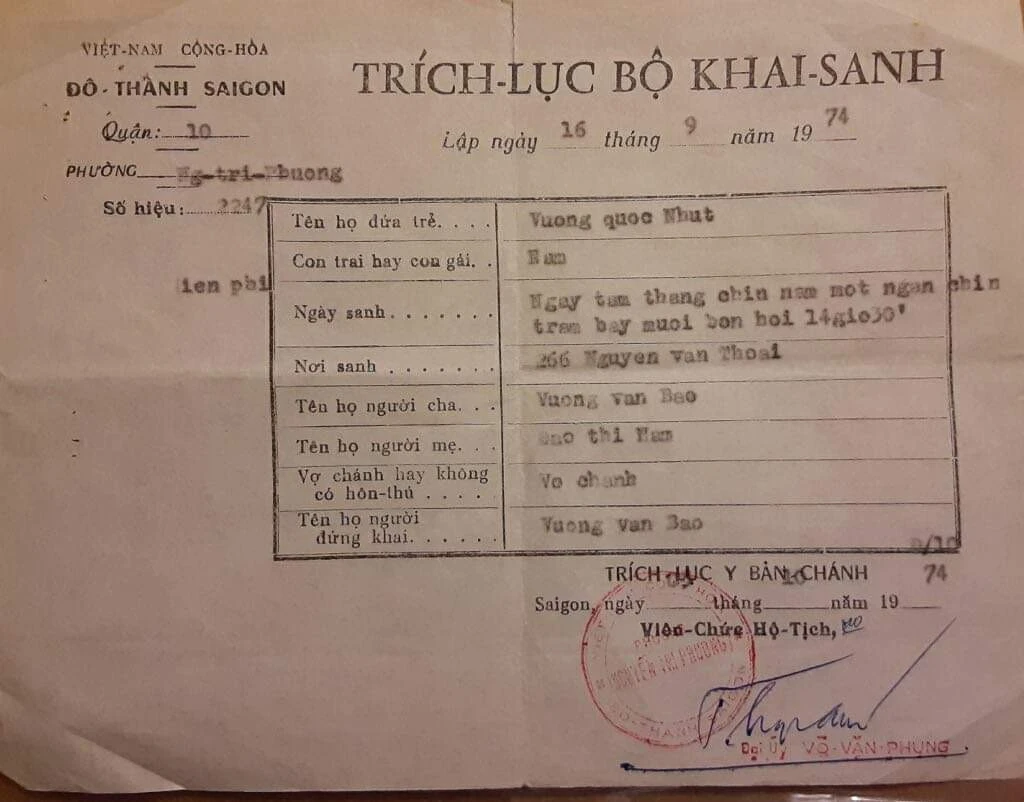 VIỆT-NAM CỘNG-HÒA
ĐÔ-THÀNH SAIGON
Quận: 10
PHƯỜNG Ng-tri-Phuong
Số hiệu: 2247
TRÍCH-LỤC BỘ KHAI-SANH
Lập ngày 16 tháng 9 năm 19 74
ien phi
Tên họ đứa trẻ. . . . Vuong quoc Nhut
Con trai hay con gái. . Nam
Ngày sanh . . . . . . . Ngay tam thang chin nam mot ngan chin
tram bay muoi bon hoi 14gio30'
Nơi sanh . . . . . . . 266 Nguyen van Thoai
Tên họ người cha. . . Vuong van Bao
Tên họ người mẹ. . . thi Nam
Vợ chánh hay không
có hôn-thú . . . . Vo chanh
Tên họ người
đứng khai. . . . . . Vuong van Bao
9/10
TRÍCH-LỤC Y BẢN CHÁNH
Saigon, ngày tháng 10 năm 19 74
Viên-Chức Hộ-Tịch,
PHƯỜNG
NGUYỄN TRI PHƯƠNG
ĐÔ-THÀNH SAIGON
Đại Úy VÕ-VĂN-PHỤNG